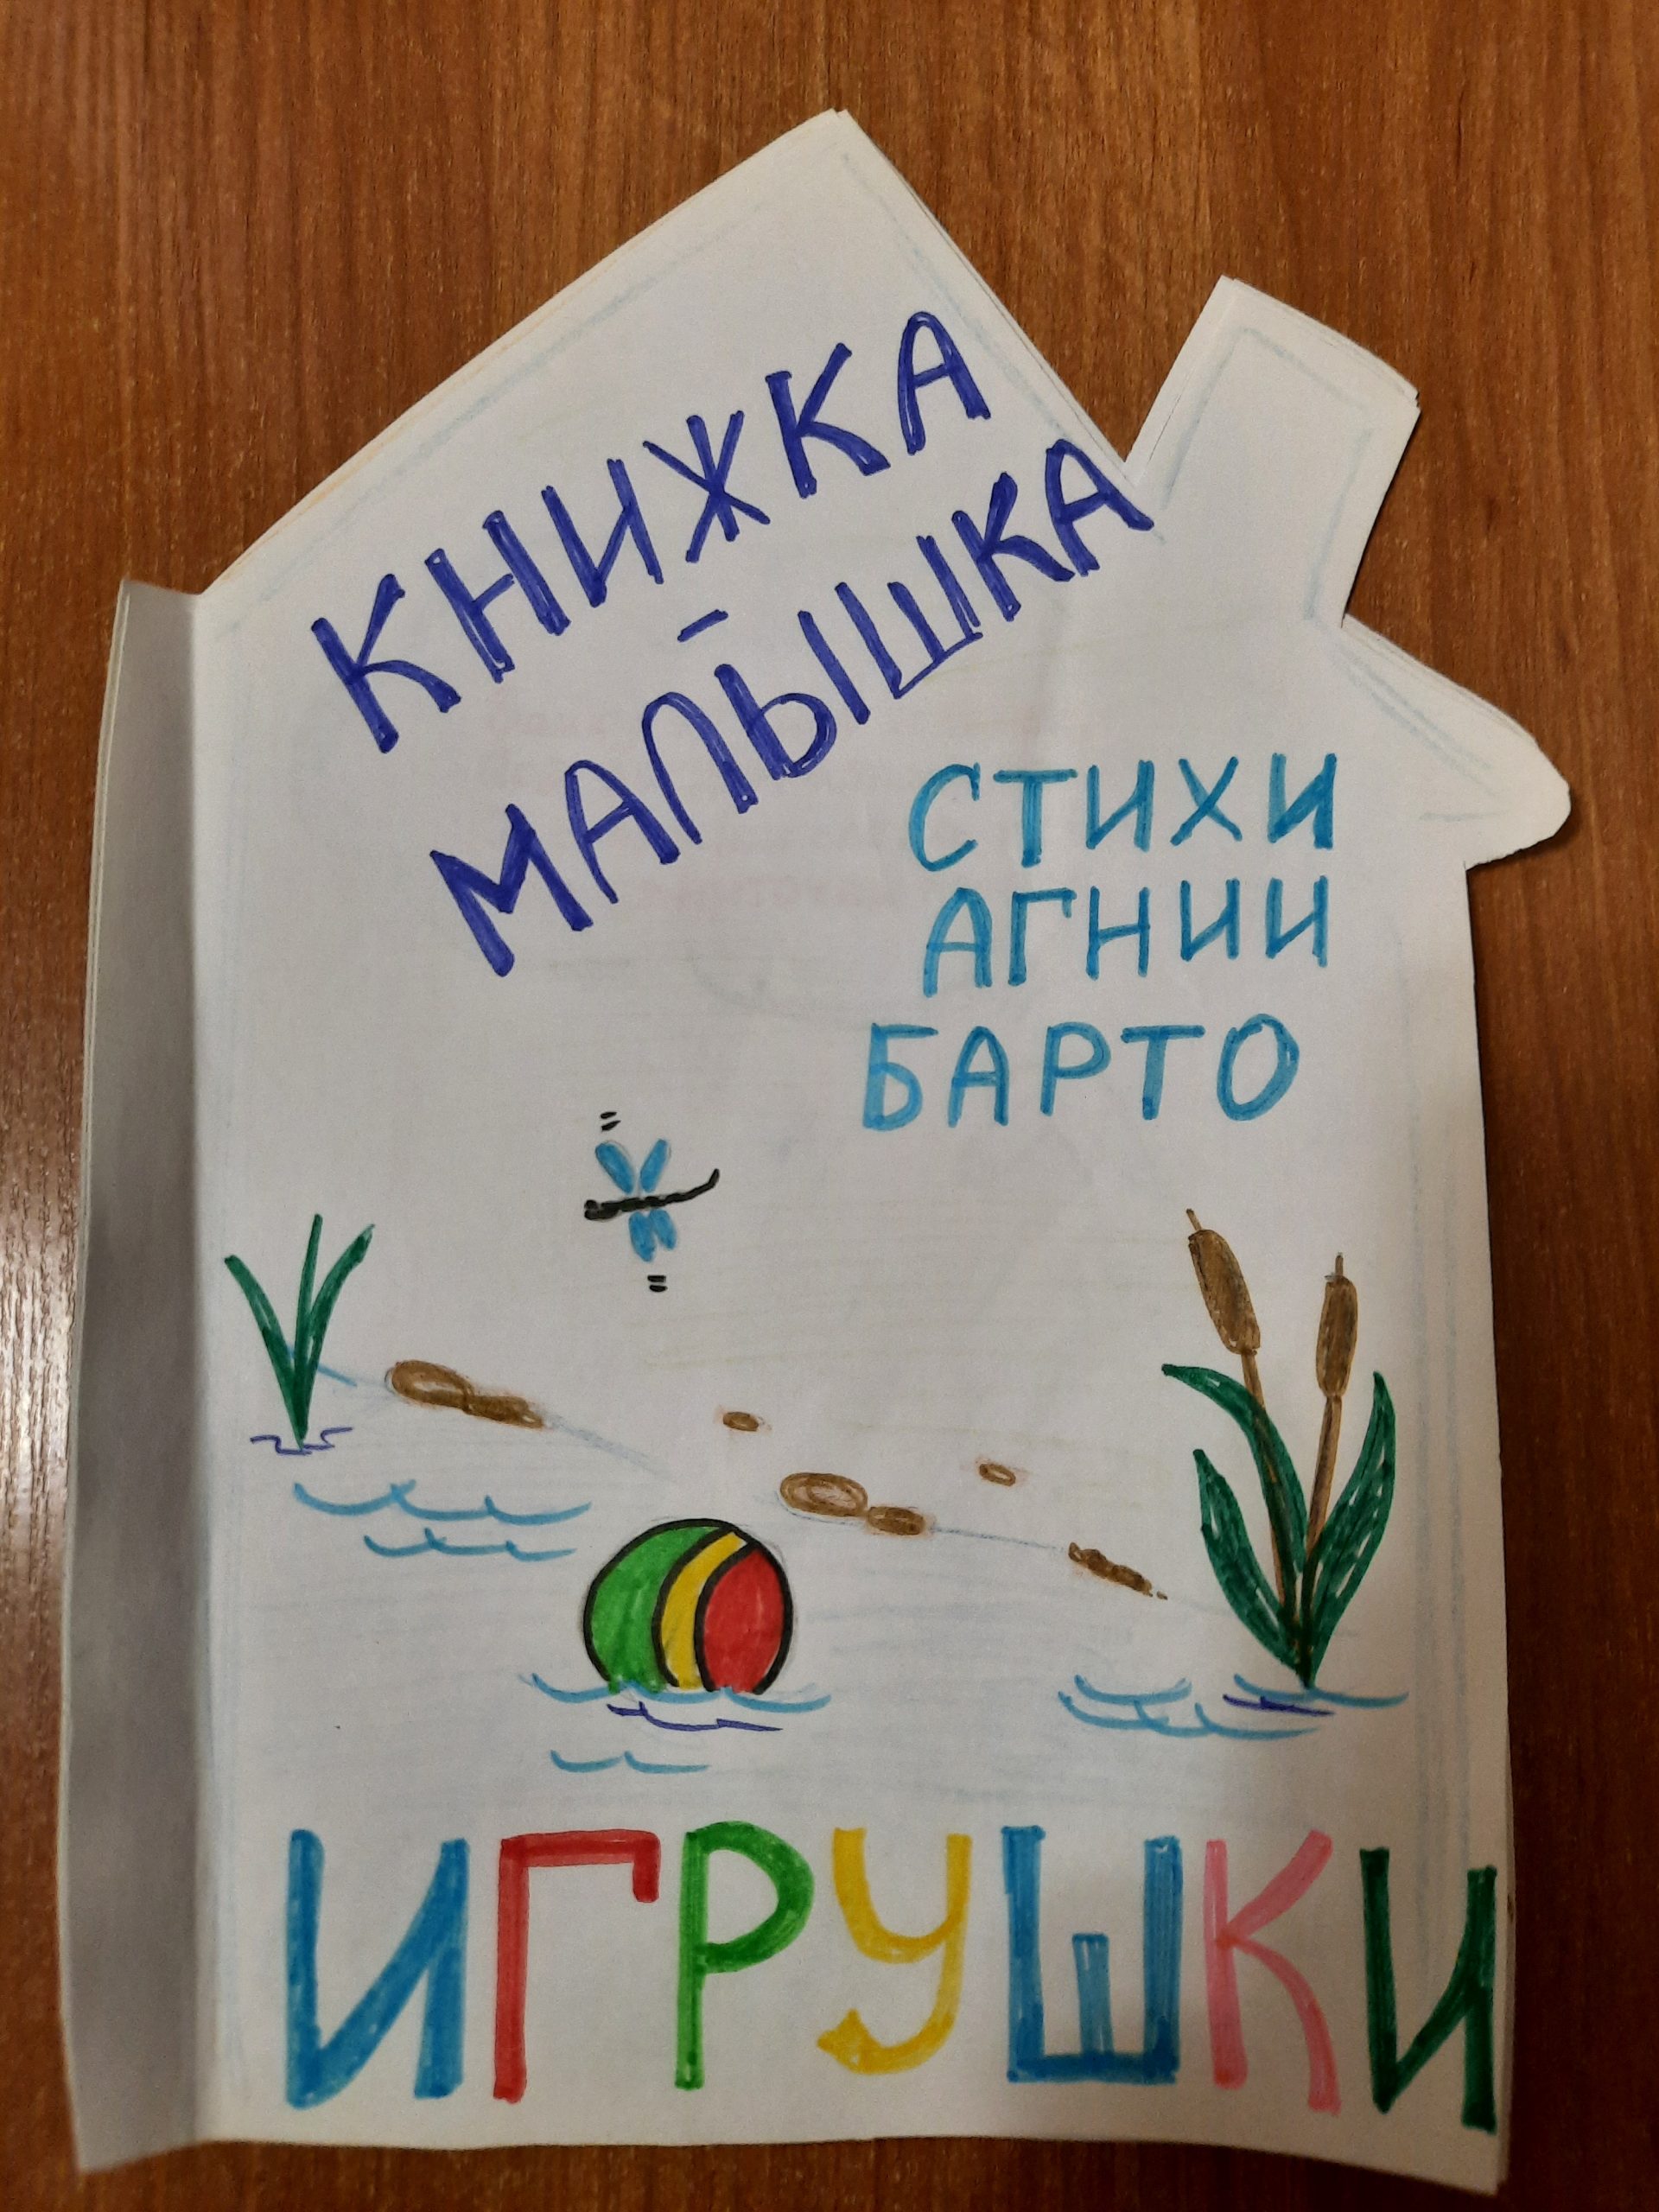 КНИЖКА
-
МАЛЫШКА
СТИХИ
АГНИИ
БАРТО
ИГРУШКИ